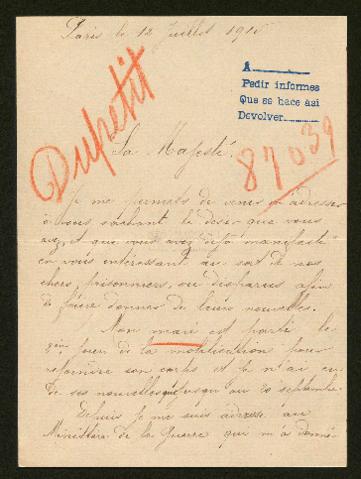 Paris le 12 Juillet 1915
A
Pedir informes
Que se hace asi
Devolver
Dupetit
87039
Sa Majesté.
Je me permets de venir m'adresser
à vous, sachant le désir que vous
avez et que vous avez déjà manifesté
en vous intéressant au sort de nos
chers prisonniers, ou disparus afin
de faire donner de leurs nouvelles.
Mon mari est parti le
jour de la mobilisation pour
rejoindre son corps et je n'ai eu
de ses nouvelles que jusqu'au 20 septembre.
Depuis je me suis adressée au
Ministère de la Guerre qui m'a donné